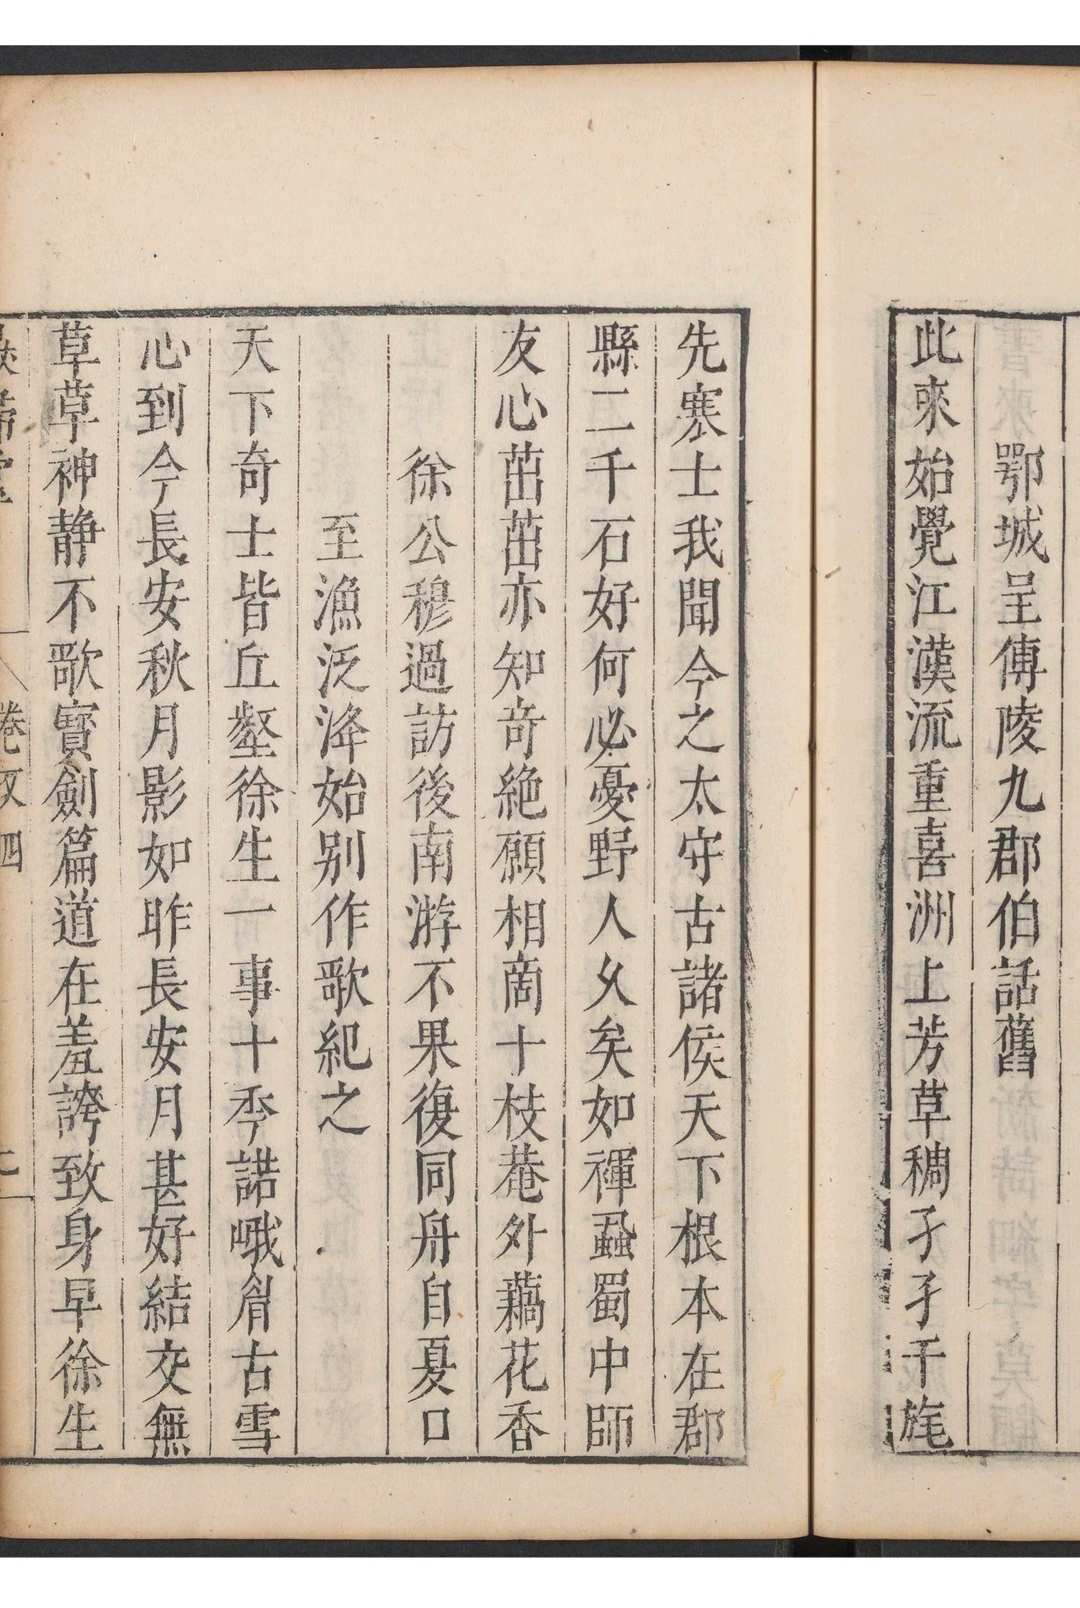 鄂城呈傅陵九郡伯話舊
此來始覺江漢流重喜洲上芳草稠孑孑干旄
先寒士我聞今之太守古諸侯天下根本在郡
縣二千石好何必憂野人久矣如褌蝨蜀中師
友心茁茁亦知奇絶願相啇十枝菴外藕花香
徐公穆過訪後南游不果復同舟自夏口
至漁泛洚始别作歌紀之
天下奇士皆丘壑徐生一事十秊諾峨眉古雪
心到今長安秋月影如昨長安月甚好結交無
草草神静不歌寶劍篇道在羞誇致身早徐生
卷 四